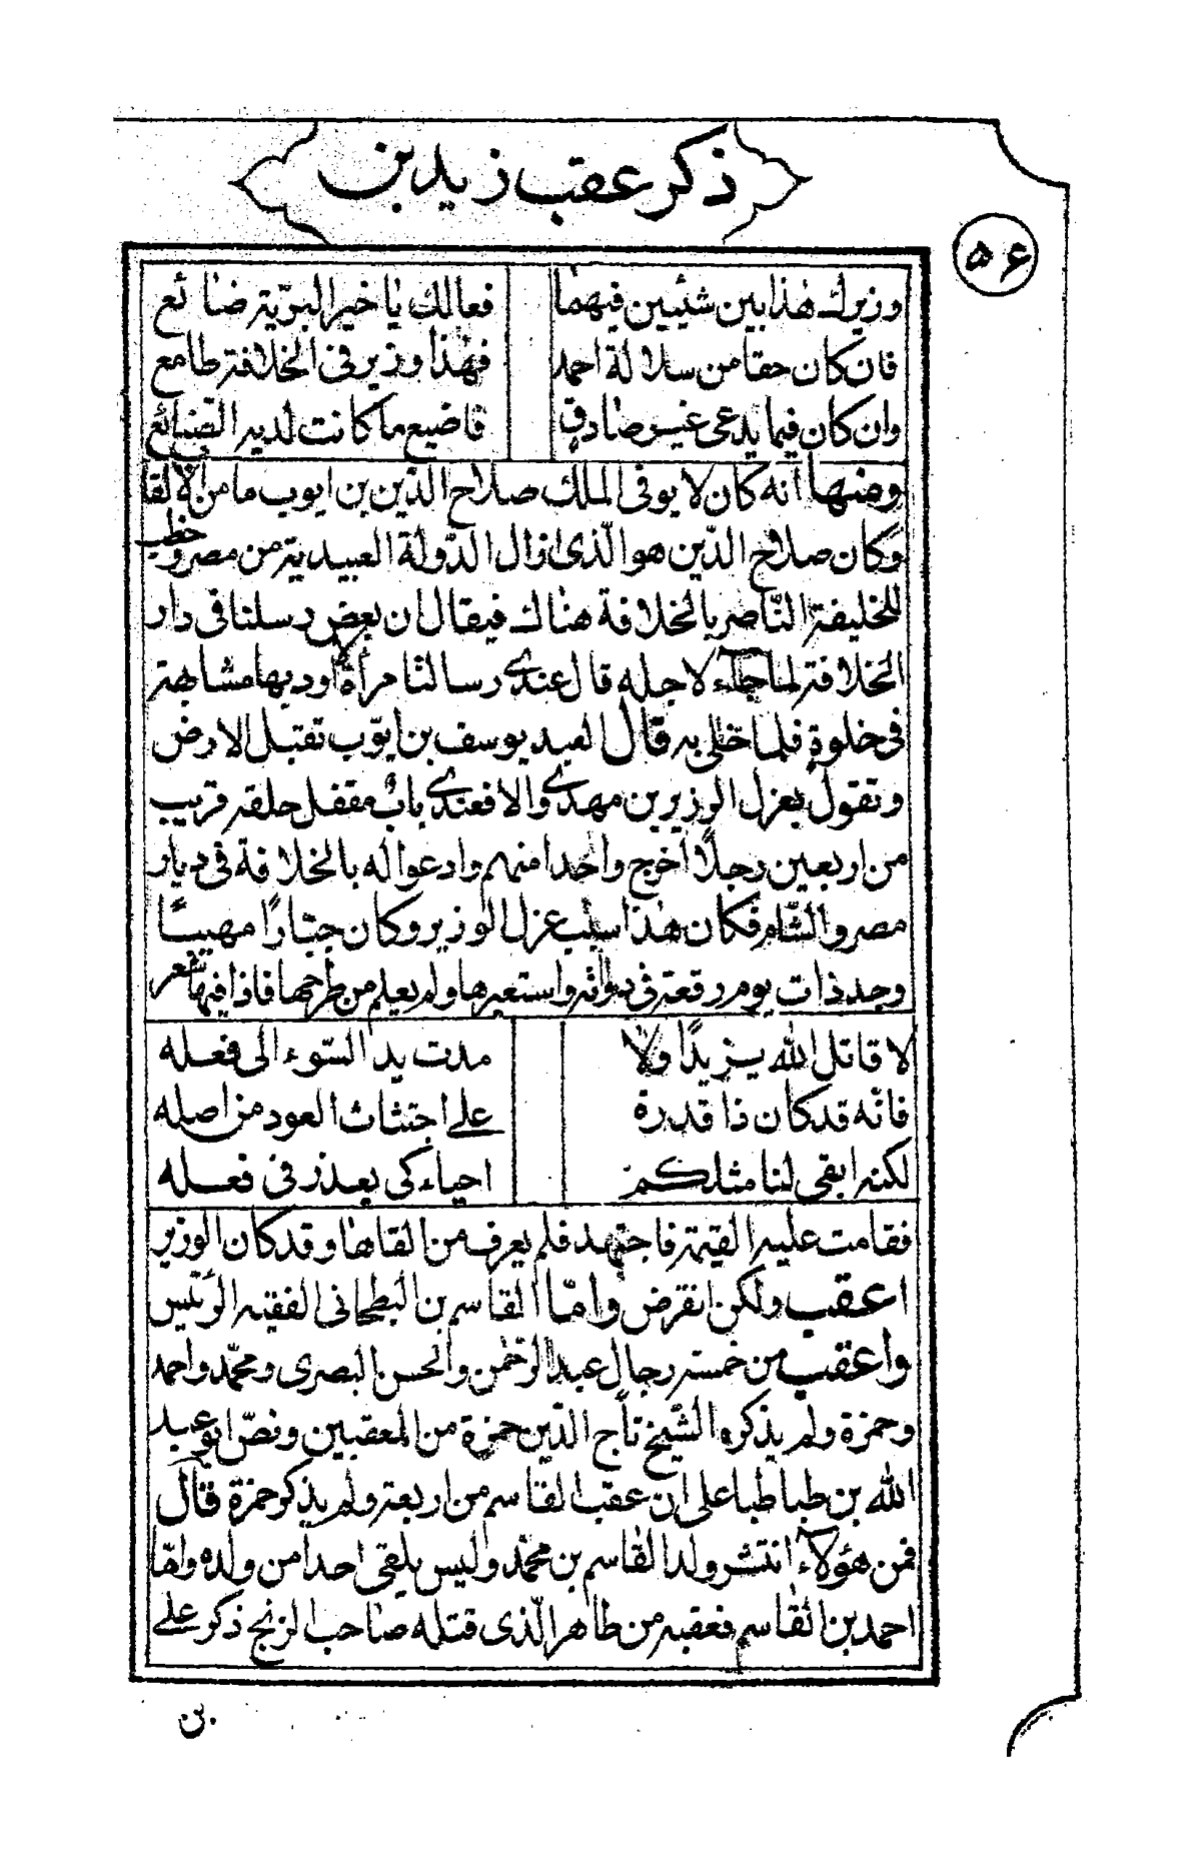 ذكر عقب زيد بن
۵۶
وزيرك هذا بين شيئين فيهما فعالك يا خير البريّة ضائع
فان كان حقا من سلالة احمد فهذا وزير فى الخلافة طامع
وان كان فيما يدعى غير صادق فاضيع ما كانت لديه الصنائع
ومنها انه كان لا يوفى الملك صلاح الدّين بن ايوب ما من الالقا
وكان صلاح الدّين هو الّذى ازال الدّولة العبيدية من مصر وخطب
للخليفة النّاصر بالخلافة هناك فيقال ان بعض رسلنا فى دار
الخلافة لما جاء لاجله قال عندى رسالة امرأة لا اوديها مشابهة
فى خلوة فلما خلى به قال العبد يوسف بن ايّوب تقبّل الارض
وتقول يعزل الوزير بن مهدى والا فعندى باب مقفل حلقه قريب
من اربعين رجلا اخرج واحدا منهم وادعوا له بالخلافة فى ديار
مصر والشّام فكان هذا سبب عزل الوزير وكان جبّارًا مهيبًا
وجد ذات يوم رقعة فى دواته واستعبرها ولم يعلم من طرحها فاذا فيها شعر
لا قاتل الله يزيدًا ولا مدت يد السّوء الى فعله
فانّه قد كان ذا قدرة على اجتثاث العود من اصله
لكنه ابقى لنا مثلكم احياء كى يعذر فى فعله
فقامت عليه القيمة فاجتهد فلم يعرف من القاها وقد كان الوزير
اعقب ولكن انقرض وامّا القاسم بن البطحانى الفقيه الرئيس
واعقب من خمسة رجال عبد الرّحمن والحسن البصرى ومحمّد واحمد
وحمزة ولم يذكره الشّيخ تاج الدّين حمزة من المعقبين ونصّ ابو عبد
الله بن طباطبا على ان عقب القاسم من اربعة ولم يذكر حمزة قال
فمن هؤلاء انتشر ولد القاسم بن محمّد وليس يلقى احدا من ولده وامّا
احمد بن القاسم فعقبه من طاهر الّذى قتله صاحب الزنج ذكر على
بن